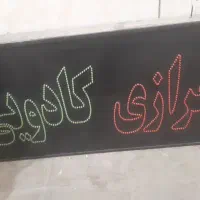 خرازی کادویی